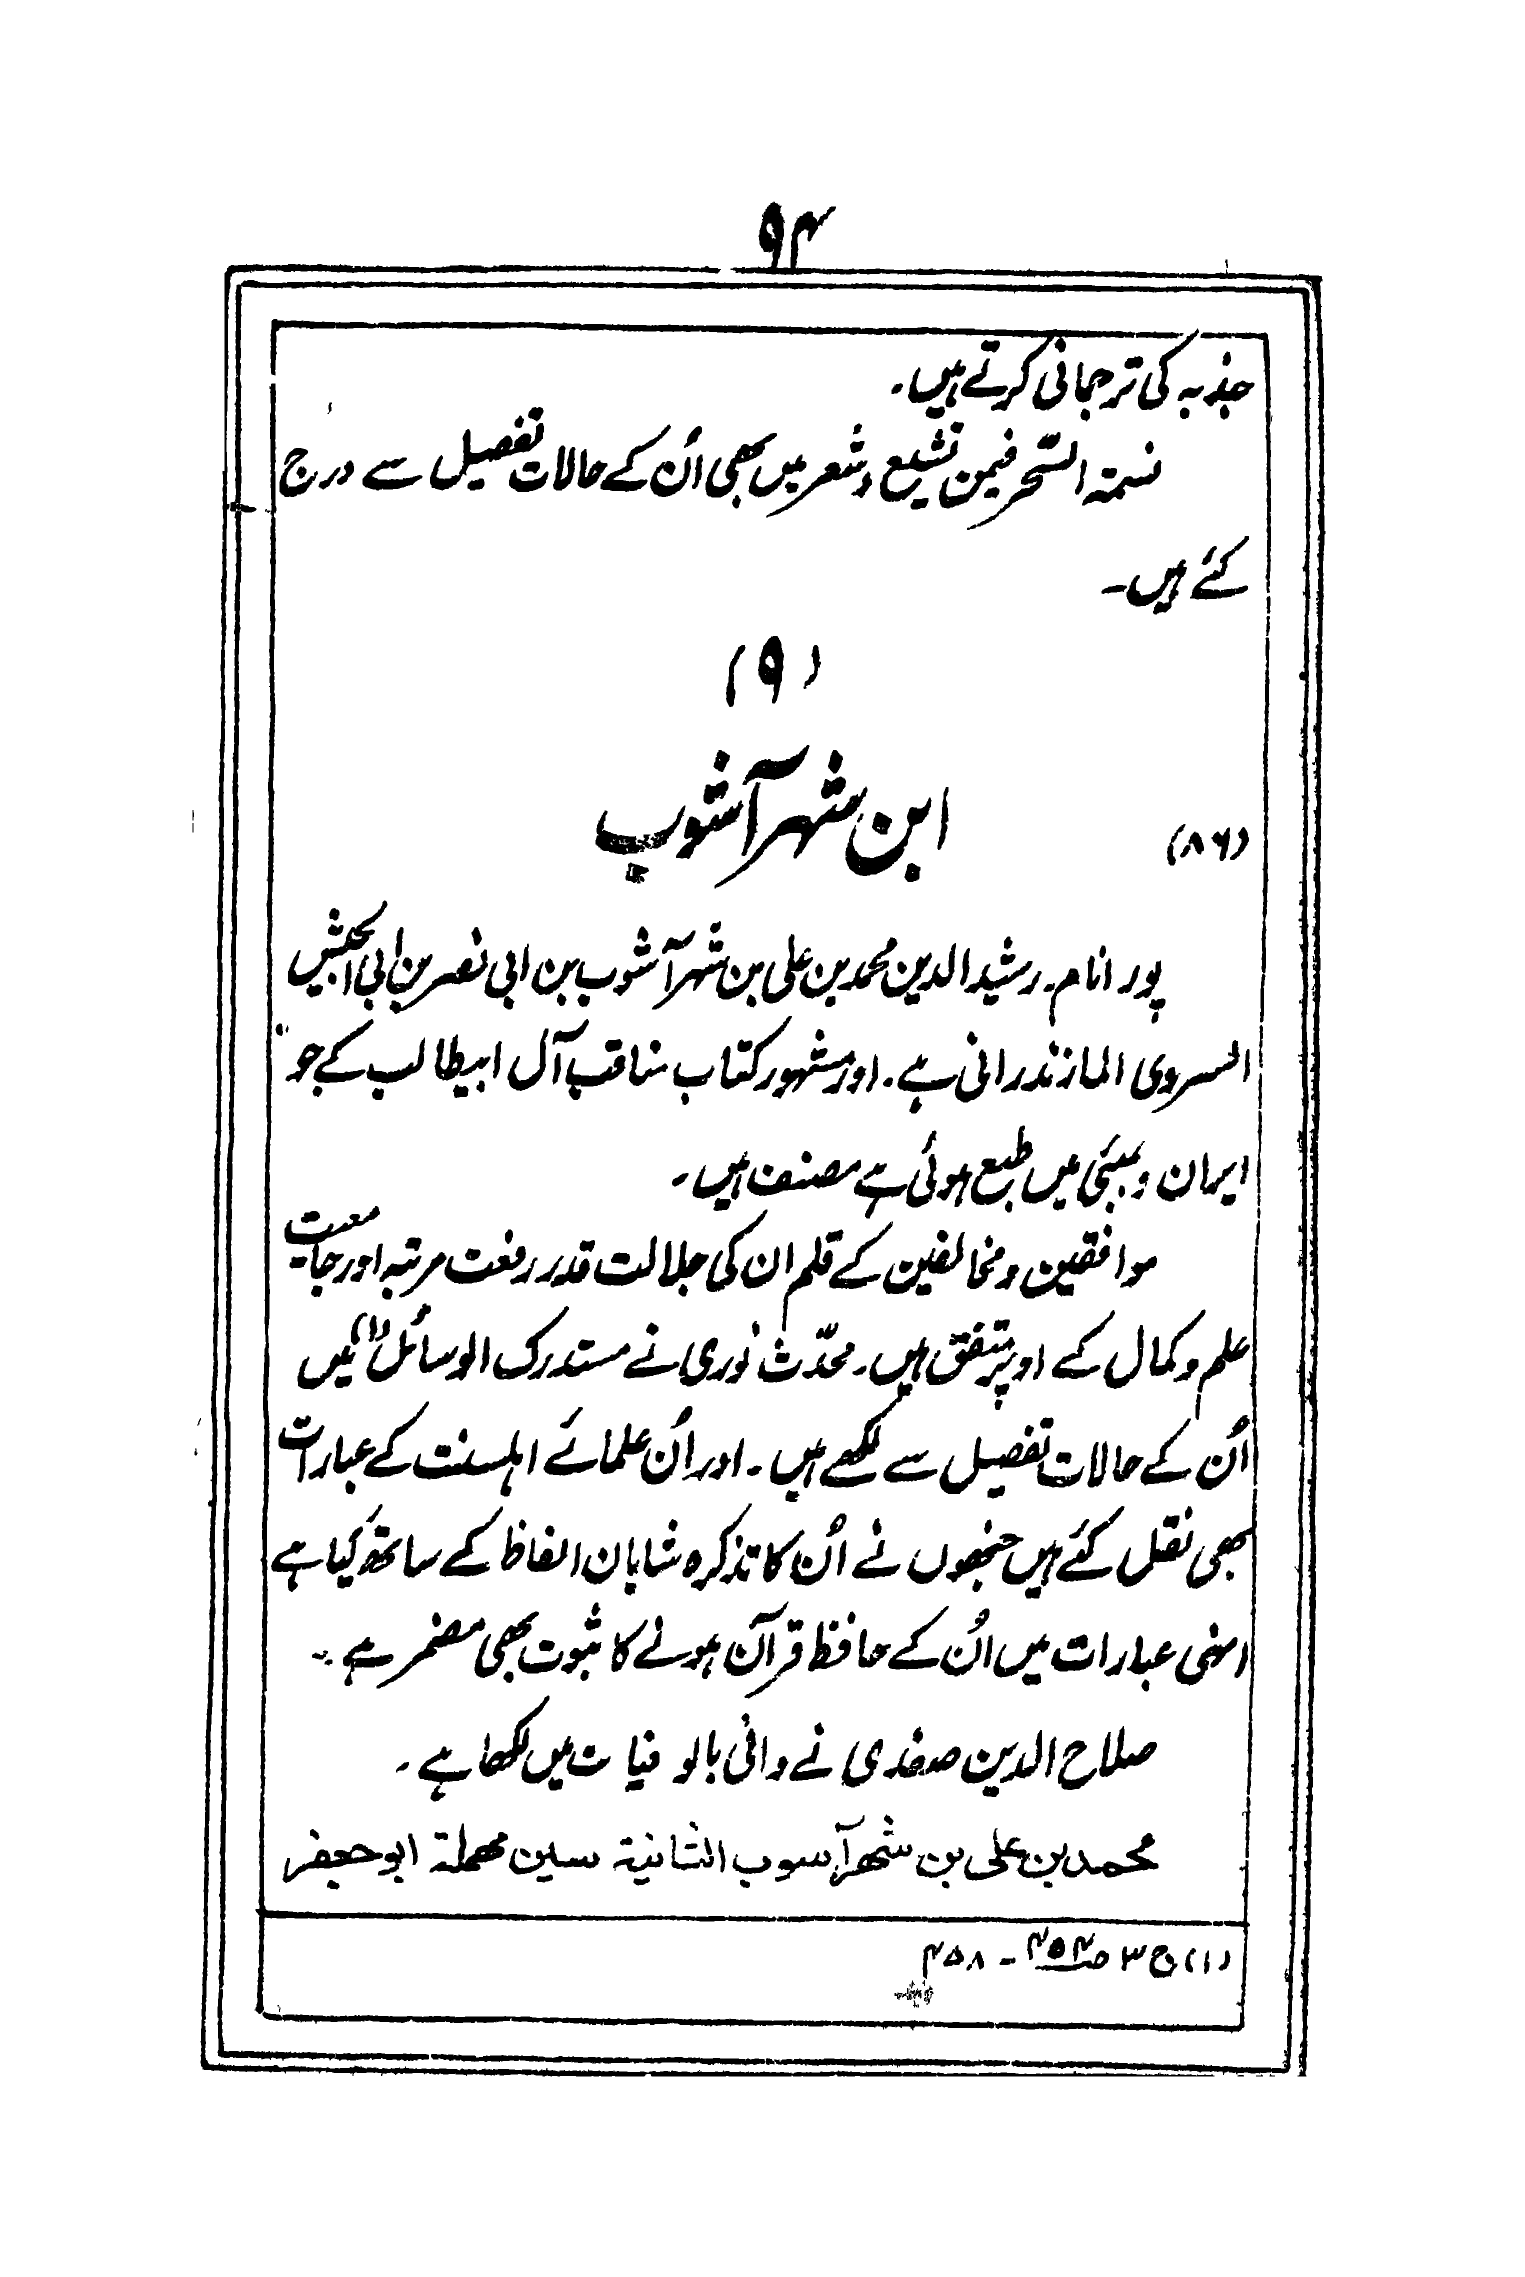 ۹۴
جذبہ کی ترجمانی کرتے ہیں۔
نسمۃ السّحر فیمن تشیع وشعر میں بھی اُن کے حالات تفصیل سے درج
کئے ہیں۔
(۹)
(۸۶) ابن شہر آشوب
پورا نام۔ رشید الدین محمد بن علی بن شہر آشوب بن ابی نصر بن ابی الجیش
السروی المازندرانی ہے۔ اور مشہور کتاب مناقب آل ابیطالب کے جو
ایران و بمبئی میں طبع ہوئی ہے مصنف ہیں۔
موافقین و مخالفین کے قلم ان کی جلالت قدر رفعت مرتبہ اور جامعیت
علم و کمال کے اوپر متفق ہیں۔ محدّث نوری نے مستدرک الوسائل (۱) میں
اُن کے حالات تفصیل سے لکھے ہیں۔ اور اُن علمائے اہلسنت کے عبارات
بھی نقل کئے ہیں جنھوں نے اُن کا تذکرہ شایان الفاظ کے ساتھ کیا ہے
انہی عبارات میں اُن کے حافظ قرآن ہونے کا ثبوت بھی مضمر ہے۔
صلاح الدین صفدی نے وافی بالوفیات میں لکھا ہے۔
محمد بن علی بن شھر آسوب الثانیۃ سین مھملۃ ابو جعفر
(۱) ج ۳ ص ۴۵۴ - ۴۵۸